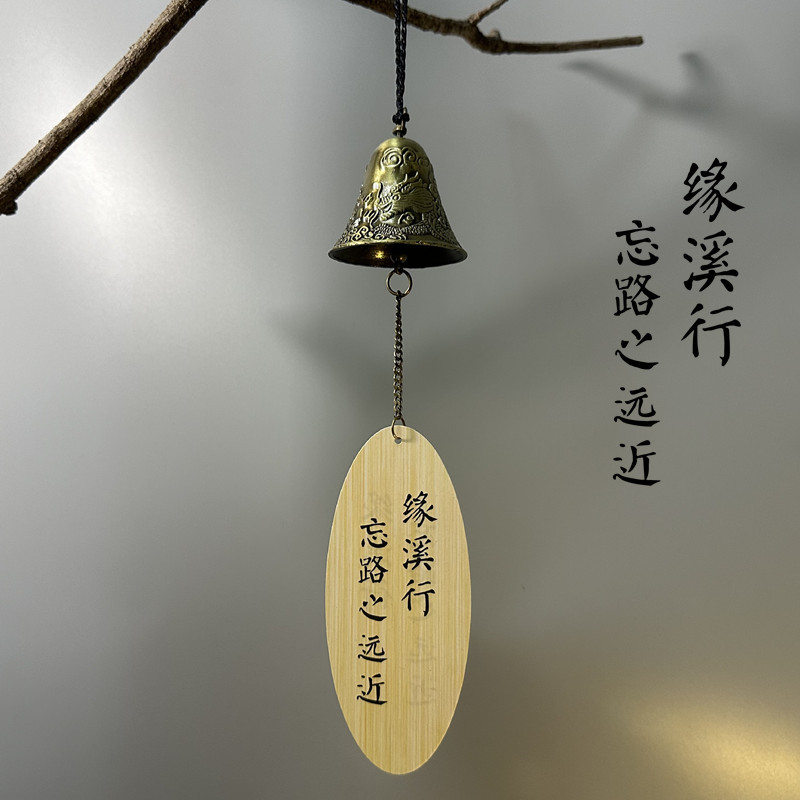 缘溪行
忘路之远近
缘溪行
忘路之远近